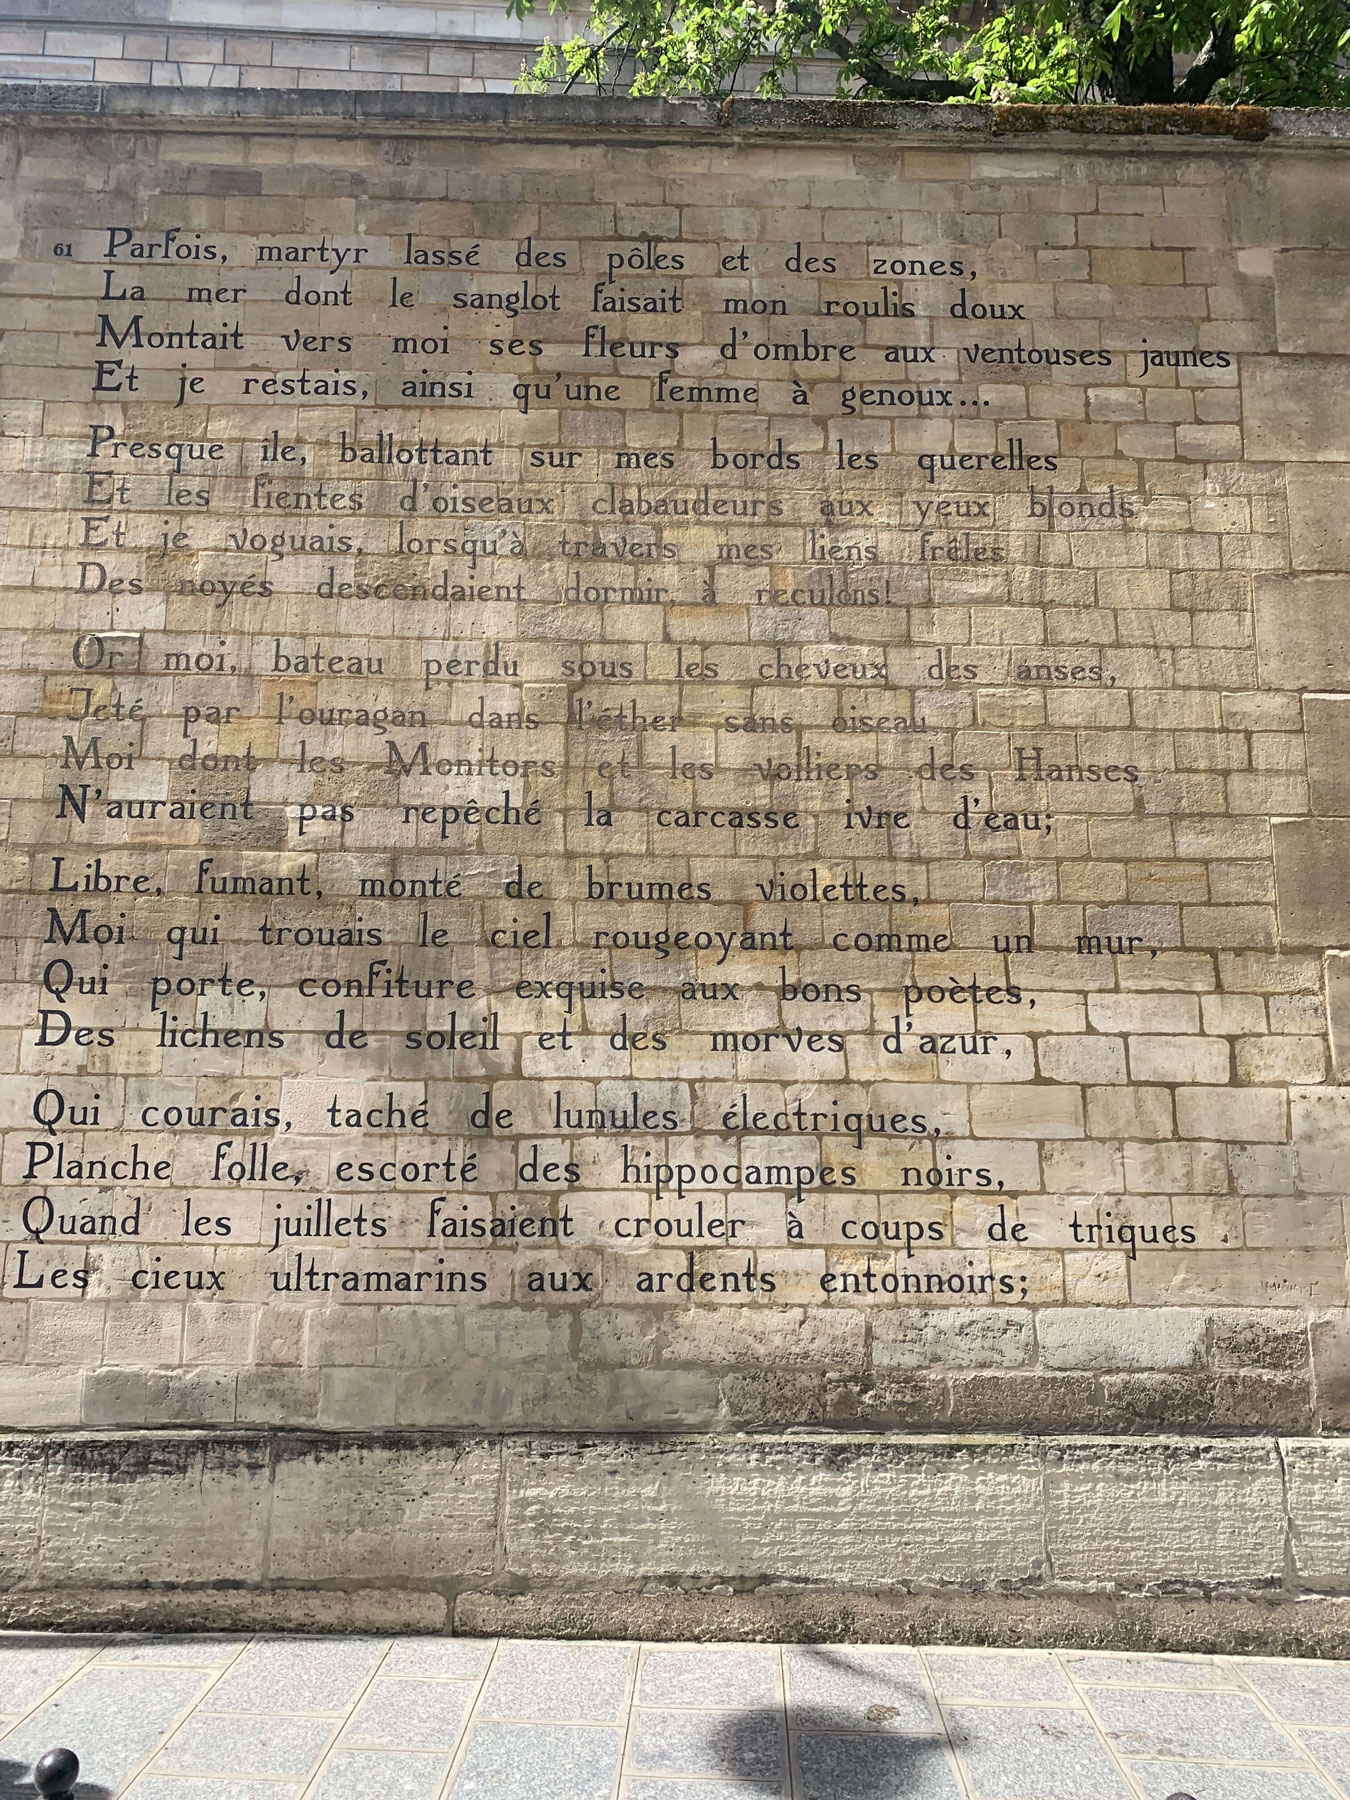 61 Parfois, martyr lassé des pôles et des zones,
La mer dont le sanglot faisait mon roulis doux
Montait vers moi ses fleurs d'ombre aux ventouses jaunes
Et je restais, ainsi qu'une femme à genoux...
Presque île, ballottant sur mes bords les querelles
Et les fientes d'oiseaux clabaudeurs aux yeux blonds
Et je voguais, lorsqu'à travers mes liens frêles
Des noyés descendaient dormir, à reculons!
Or moi, bateau perdu sous les cheveux des anses,
Jeté par l'ouragan dans l'éther sans oiseau
Moi dont les Monitors et les voiliers des Hanses
N'auraient pas repêché la carcasse ivre d'eau;
Libre, fumant, monté de brumes violettes,
Moi qui trouais le ciel rougeoyant comme un mur,
Qui porte, confiture exquise aux bons poètes,
Des lichens de soleil et des morves d'azur,
Qui courais, taché de lunules électriques,
Planche folle, escorté des hippocampes noirs,
Quand les juillets faisaient crouler à coups de triques
Les cieux ultramarins aux ardents entonnoirs;